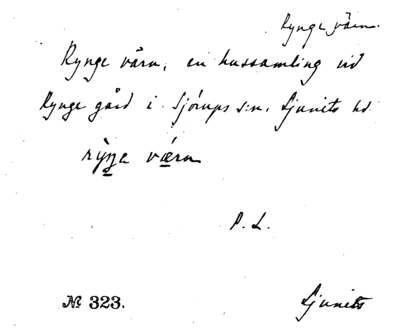 Rynge värn.
Rynge värn, en hussamling vid
Rynge gård i Sjörups s:n. Ljunits hd
rỳŋe væ̀rn
P. L.
№ 323.
Ljunits